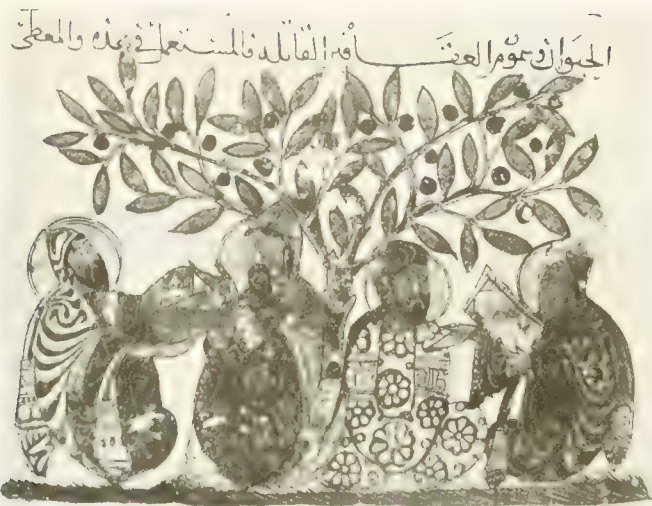 الحيوان وسموم العقـــاقير القاتله فالمستعمل في هذه والمعطى